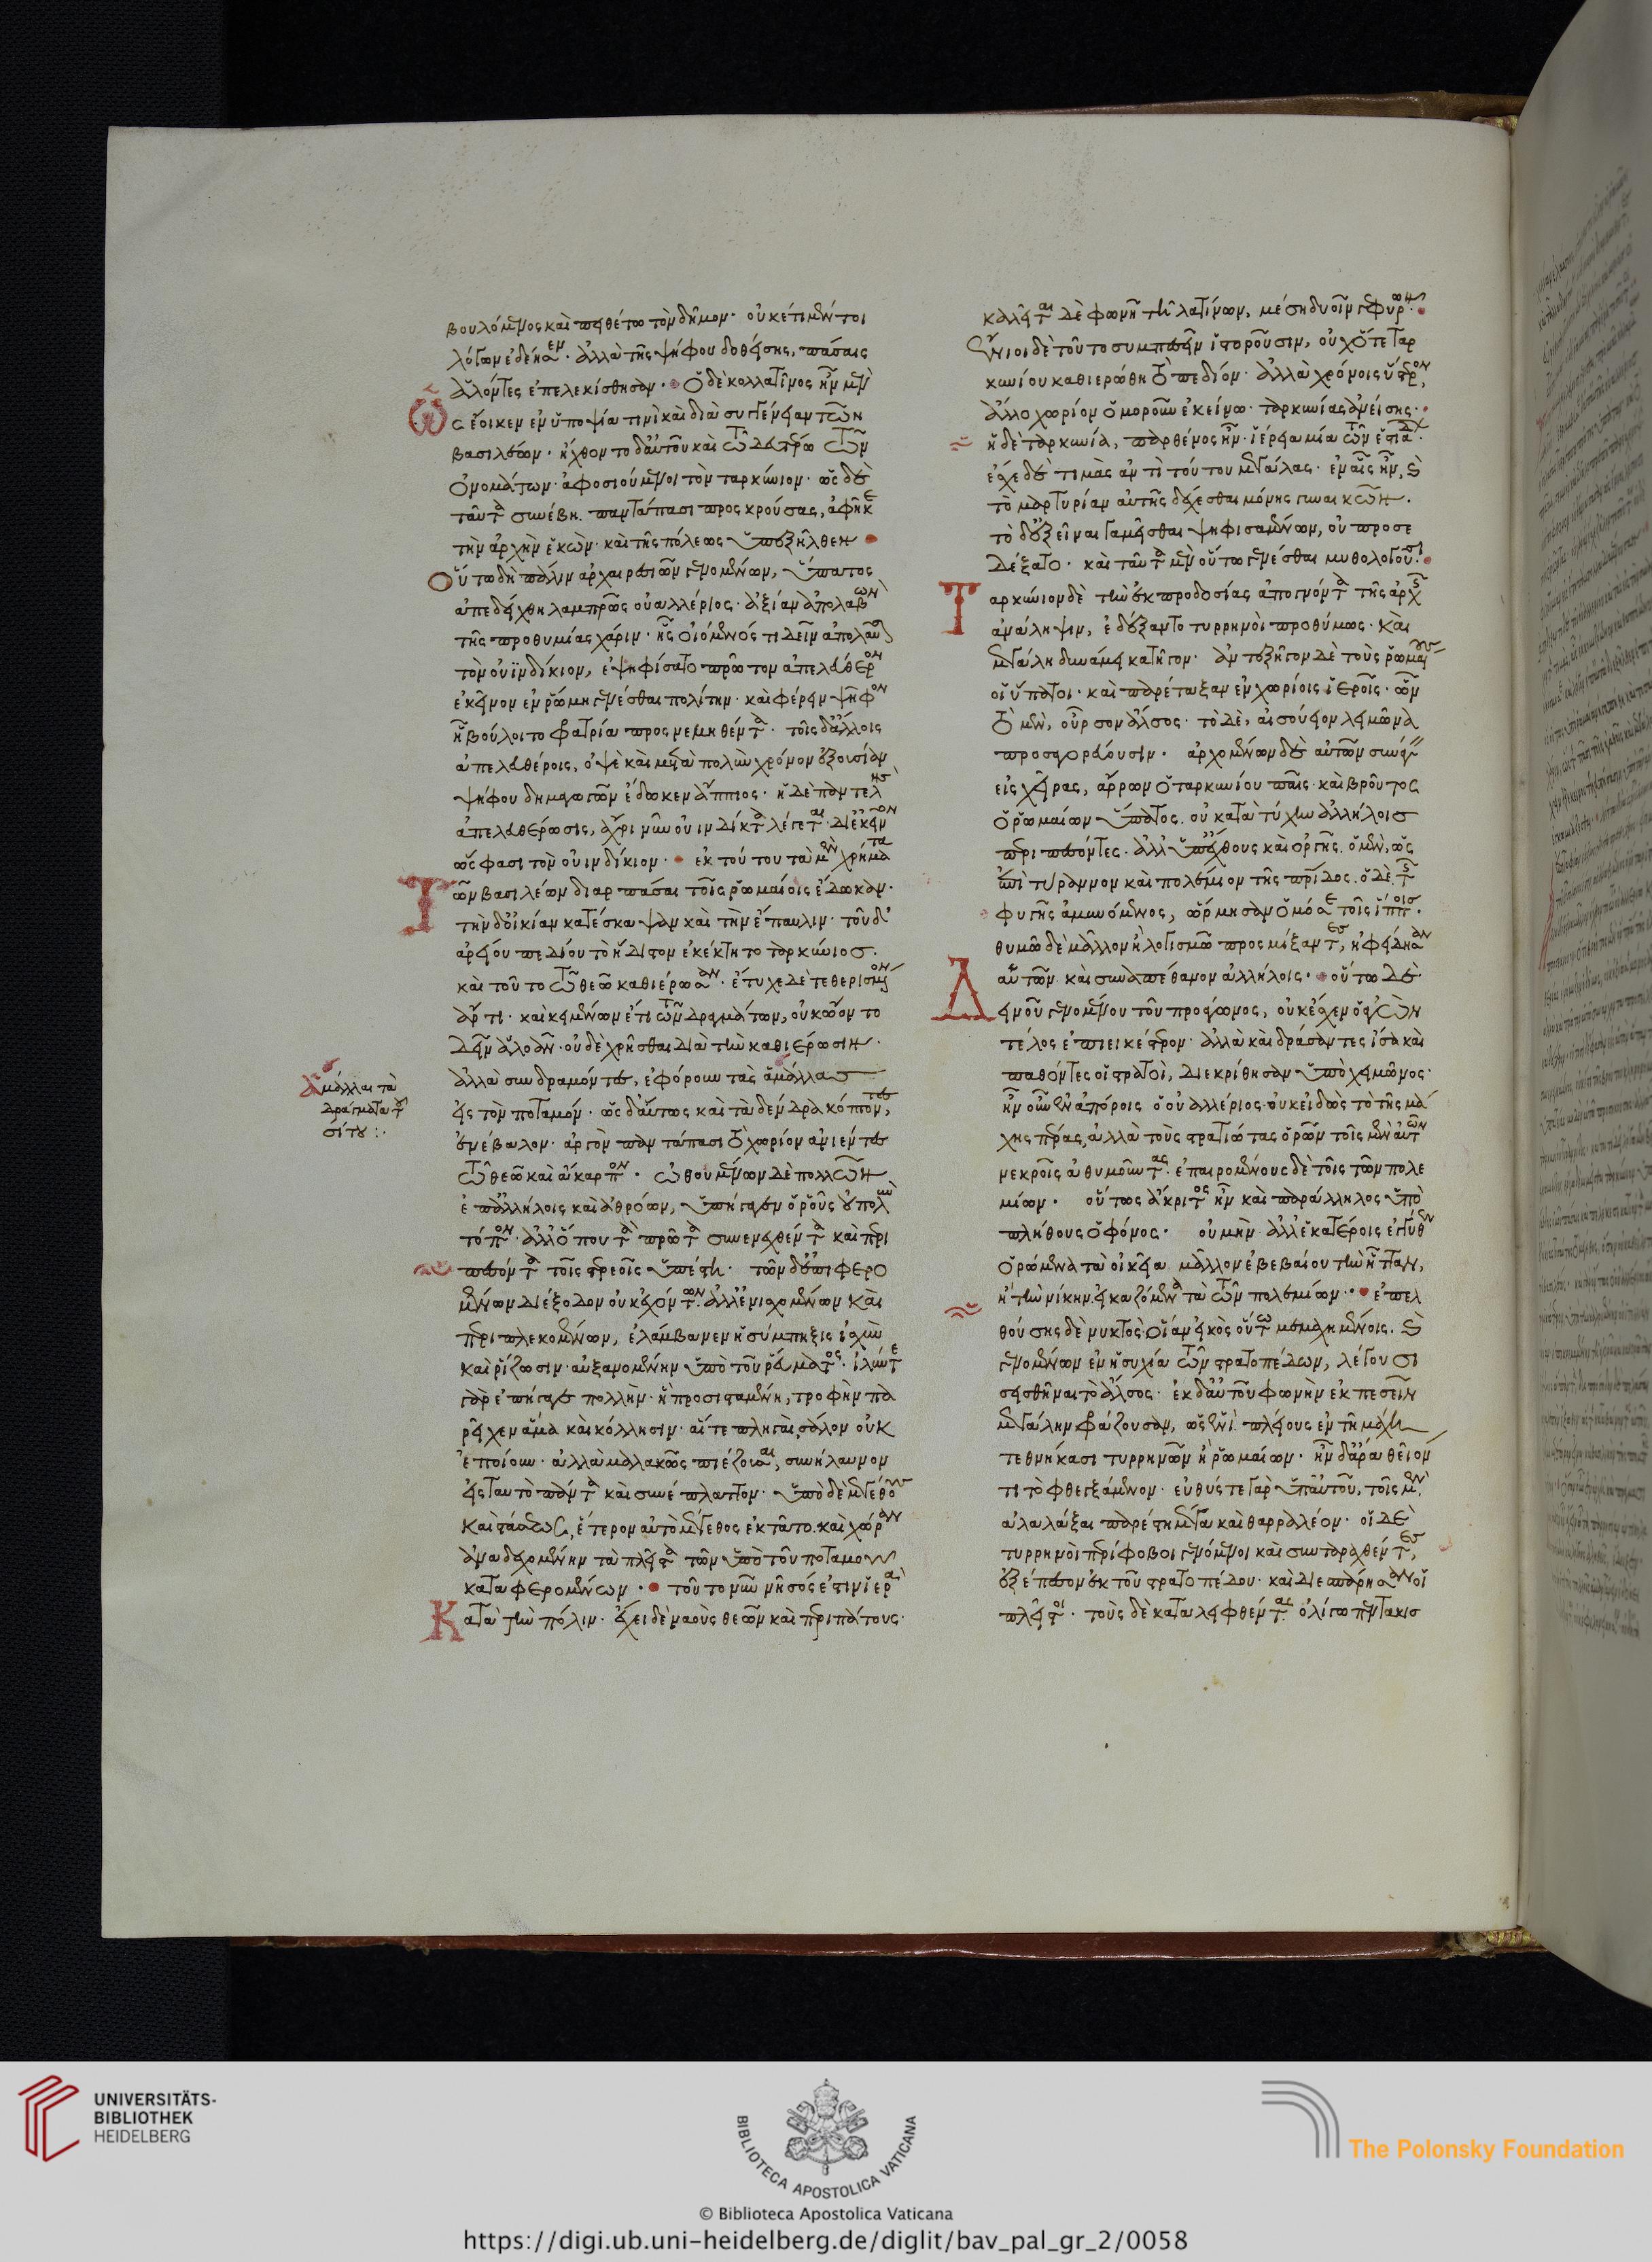 βουλόμενος καὶ πειθέτω τὸν δῆμον· οὐκέτι μέντοι
λόγων ἐδέησεν· ἀλλὰ τῆς ψήφου δοθείσης, πάσαις
ἁλόντες ἐπελεκίσθησαν· ὁ δὲ κολλατῖνος ἦν μὲν
ὡς ἔοικεν ἐν ὑποψία τινὶ καὶ διὰ συγγένειαν τῶν
βασιλέων· ἤχθοντο δ' αὐτοῦ καὶ τῶ δευτέρω τῶν
ὀνομάτων· ἀφοσιούμενοι τὸν ταρκύνιον· ὡς δὲ
ταῦτα συνέβη. παντάπασι προσκρούσας, ἀφῆκε
τὴν ἀρχὴν ἑκὼν· καὶ τῆς πόλεως ὑπεξῆλθεν
οὕτω δὴ πάλιν ἀρχαιρεσιῶν γενομένων, ὕπατος
ἀπεδείχθη λαμπρῶς οὐαλλέριος· ἀξίαν ἀπολαβὼν
τῆς προθυμίας χάριν· ἧς οἰόμενός τι δεῖν ἀπολαῦσαι
τὸν οὐϊνδίκιον, ἐψηφίσατο πρῶτον ἀπελεύθερον
ἐκεῖνον ἐν ῥώμη γενέσθαι πολίτην· καὶ φέρειν ψῆφον
ἧ βούλοιτο φατρία προσνεμηθέντα· τοῖς δ' ἄλλοις
ἀπελευθέροις, ὀψὲ καὶ μετὰ πολὺν χρόνον ἐξουσίαν
ψήφου δημαγωγῶν ἔδωκεν ἄππιος· ἡ δὲ παντελὴς
ἀπελευθέρωσις, ἄχρι νῦν οὐινδίκτα λέγεται· δι' ἐκεῖνον
ὥς φασι τὸν οὐινδίκιον· ἐκ τούτου τὰ μὲν χρήματα
τῶν βασιλέων διαρπάσαι τοῖς ῥωμαίοις ἔδωκαν·
τὴν δ' οἰκίαν κατέσκαψαν καὶ τὴν ἔπαυλιν· τοῦ δ'
ἀρείου πεδίου τὸ ἥδιστον ἐκέκτητο ταρκύνιος.
καὶ τοῦτο τῶ θεῶ καθιέρωσαν· ἔτυχε δὲ τεθερισμένον
ἄρτι· καὶ κειμένων ἔτι τῶν δραγμάτων, οὐκ ὤοντο
δεῖν ἀλοᾶν· οὐδὲ χρῆσθαι διὰ τὴν καθιέρωσιν·
ἀλλὰ συνδραμόντες, ἐφόρουν τὰς ἀμάλλας
ἀμάλλαι τὰ
δράγματα τοῦ
σίτου :·
εἰς τὸν ποταμόν· ὡς δ' αὕτως καὶ τὰ δένδρα κόπτοντες,
ἐνέβαλον· ἀργὸν παντάπασι τὸ χωρίον ἀνιέντες
τῶ θεῶ καὶ ἄκαρπον· ὠθουμένων δὲ πολλῶν
ἐπ' ἀλλήλοις καὶ ἀθρόων, ὑπήγαγεν ὁ ῥοῦς οὐ πολὺν
τόπον· ἀλλ' ὅπου τὰ πρῶτα συνενεχθέντα καὶ περι
πεσόντα τοῖς στερεοῖς ὑπέστη· τῶν δ' ἐπιφερο
μένων διέξοδον οὐκ ἐχόντων· ἀλλ' ἐνισχομένων καὶ
περιπλεκομένων, ἐλάμβανεν ἡ σύμπηξις ἰσχὺν
καὶ ῥίζωσιν· αὐξανομένην ὑπὸ τοῦ ῥεύματος· ἰλύν τε
γὰρ ἐπήγαγε πολλὴν· ἣ προσισταμένη, τροφὴν πα
ρεῖχεν ἅμα καὶ κόλλησιν· αἵ τε πληγαὶ, σάλον οὐκ
ἐποίουν· ἀλλὰ μαλακῶς πιέζουσαι, συνήλαυνον
εἰς ταυτὸ πάντα καὶ συνέπλαττον· ὑπὸ δὲ μεγέθους
καὶ στάσεως, ἕτερον αὐτὸ μέγεθος ἐκτᾶτο. καὶ χώραν
ἀναδεχομένην τὰ πλεῖστα τῶν ὑπὸ τοῦ ποταμοῦ
καταφερομένων· τοῦτο νῦν νῆσός ἐστιν ἱερὰ
κατὰ τὴν πόλιν· ἔχει δὲ ναοὺς θεῶν καὶ περιπάτους·
καλεῖται δὲ φωνῆ τῆ λατίνων, μέση δυοῖν γεφυρῶν·
ἔνιοι δὲ τοῦτο συμπεσεῖν ἱστοροῦσιν, οὐχ ὅτε ταρ
κυνίου καθιερώθη τὸ πεδίον· ἀλλὰ χρόνοις ὕστερον,
ἄλλο χωρίον ὁμοροῦν ἐκείνω· ταρκυνίας ἀνείσης·
ἡ δὲ ταρκυνία, παρθένος ἦν· ἱέρεια μία τῶν ἑστιάδων·
ἔσχε δὲ τιμὰς ἀντὶ τούτου μεγάλας· ἐν αἷς ἦν, καὶ
τὸ μαρτυρίαν αὐτῆς δέχεσθαι μόνης γυναικῶν·
τὸ δ' ἐξεῖναι γαμεῖσθαι ψηφισαμένων, οὐ προσε
δέξατο· καὶ ταῦτα μὲν οὕτω γενέσθαι μυθολογοῦσι·
ταρκύνιον δὲ τὴν ἐκ προδοσίας ἀπογνόντα τῆς ἀρχῆς
ἀνάληψιν, ἐδέξαντο τυρρηνοὶ προθύμως· καὶ
μεγάλη δυνάμει κατῆγον· ἀντεξῆγον δὲ τοὺς ῥωμαίους
οἱ ὕπατοι· καὶ παρέταξαν ἐν χωρίοις ἱεροῖς· ὧν
τὸ μὲν, οὖρσον ἄλσος· τὸ δὲ, αἰσούειον λειμῶνα
προσαγορεύουσιν· ἀρχομένων δὲ αὐτῶν συνάγειν
εἰς χεῖρας, ἄρρων ὁ ταρκυνίου παῖς· καὶ βροῦτος
ὁ ῥωμαίων ὕπατος. οὐ κατὰ τύχην ἀλλήλοις
περιπεσόντες. ἀλλ' ὑπ' ἔχθους καὶ ὀργῆς. ὁ μὲν, ὡς
ἐπὶ τύραννον καὶ πολέμιον τῆς πατρίδος. ὁ δὲ, τῆς
φυγῆς ἀμυνόμενος, ὥρμησαν ὁμόσε τοῖς ἵπποις·
θυμῶ δὲ μᾶλλον ἢ λογισμῶ προσμίξαντες, ἠφείδησαν
αὑτῶν· καὶ συναπέθανον ἀλλήλοις· οὕτω δὲ
δεινοῦ γενομένου τοῦ προαγῶνος, οὐκ ἔσχεν ὁ ἀγὼν
τέλος ἐπιεικέστερον· ἀλλὰ καὶ δράσαντες ἴσα καὶ
παθόντες οἱ στρατοὶ, διεκρίθησαν ὑπὸ χειμῶνος·
ἦν οὖν ἐν ἀπόροις ὁ οὐαλλέριος· οὐκ εἰδὼς τὸ τῆς μά
χης πέρας, ἀλλὰ τοὺς στρατιώτας ὁρῶν τοῖς μὲν αὑτῶν
νεκροῖς ἀθυμοῦντας· ἐπαιρομένους δὲ τοῖς τῶν πολε
μίων· οὕτως ἄκριτος ἦν καὶ παράλληλος ὑπὸ
πλήθους ὁ φόνος· οὐ μὴν ἀλλ' ἑκατέροις ἐγγύθεν
ὁρώμενα τὰ οἰκεῖα μᾶλλον ἐβεβαίου τὴν ἧτταν,
ἢ τὴν νίκην, εἰκαζόμενα τὰ τῶν πολεμίων· ἐπελ
θούσης δὲ νυκτὸς· οἵαν εἰκὸς οὕτω μεμαχημένοις. καὶ
γενομένων ἐν ἡσυχία τῶν στρατοπέδων, λέγουσι
σεισθῆναι τὸ ἄλσος· ἐκ δ' αὐτοῦ φωνὴν ἐκπεσεῖν
μεγάλην φράζουσαν, ὡς ἑνὶ πλείους ἐν τῆ μάχη
τεθνήκασι τυρρηνῶν ἢ ῥωμαίων· ἦν δ' ἄρα θεῖόν
τι τὸ φθεγξάμενον· εὐθύς τε γὰρ ὑπ' αὐτοῦ, τοῖς μὲν
ἀλαλάξαι παρέστη μέγα καὶ θαρραλέον· οἱ δὲ
τυρρηνοὶ περίφοβοι γενόμενοι καὶ συνταραχθέντες,
ἐξέπεσον ἐκ τοῦ στρατοπέδου· καὶ διεσπάρησαν οἱ
πλεῖστοι· τοὺς δὲ καταλειφθέντας ὀλίγω πεντακισ
UNIVERSITÄTS-
BIBLIOTHEK
HEIDELBERG
BIBLIOTECA APOSTOLICA VATICANA
The Polonsky Foundation
© Biblioteca Apostolica Vaticana
https://digi.ub.uni-heidelberg.de/diglit/bav_pal_gr_2/0058